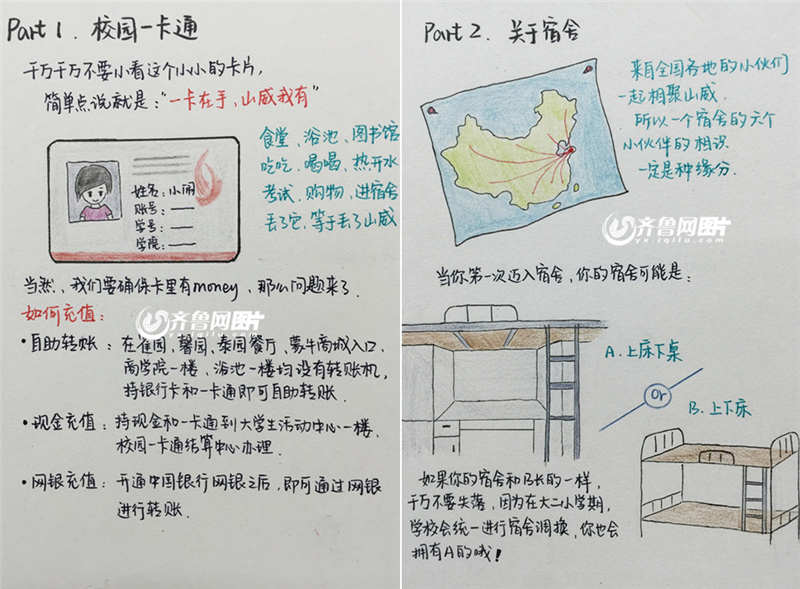 Part 1. 校园一卡通
千万千万不要小看这个小小的卡片,
简单点说就是:"一卡在手,山威我有"
姓名:小闹
账号:
学号:
学院:
食堂、浴池、图书馆
吃吃、喝喝、热开水
考试、购物、进宿舍
丢了它,等于丢了山威
当然、我们要确保卡里有money,那么问题来了
如何充值:
•自助转账:在崔园、馨园、泰园餐厅、蒙牛商城入口、
商学院一楼、浴池一楼均设有转账机,
持银行卡和一卡通即可自助转账.
•现金充值:持现金和一卡通到大学生活动中心一楼、
校园一卡通结算中心办理.
•网银充值:开通中国银行网银之后,即可通过网银
进行转账.
齐鲁网图片
Part 2. 关于宿舍
来自全国各地的小伙们
一起相聚山威.
所以一个宿舍的六个
小伙伴的相识
一定是种缘分.
齐鲁网图片
yx.iqilu.com
当你第一次迈入宿舍,你的宿舍可能是:
A.上床下桌
or
B.上下床
如果你的宿舍和B长的一样,
千万不要失落,因为在大二小学期,
学校会统一进行宿舍调换,你也会
拥有A的哦!